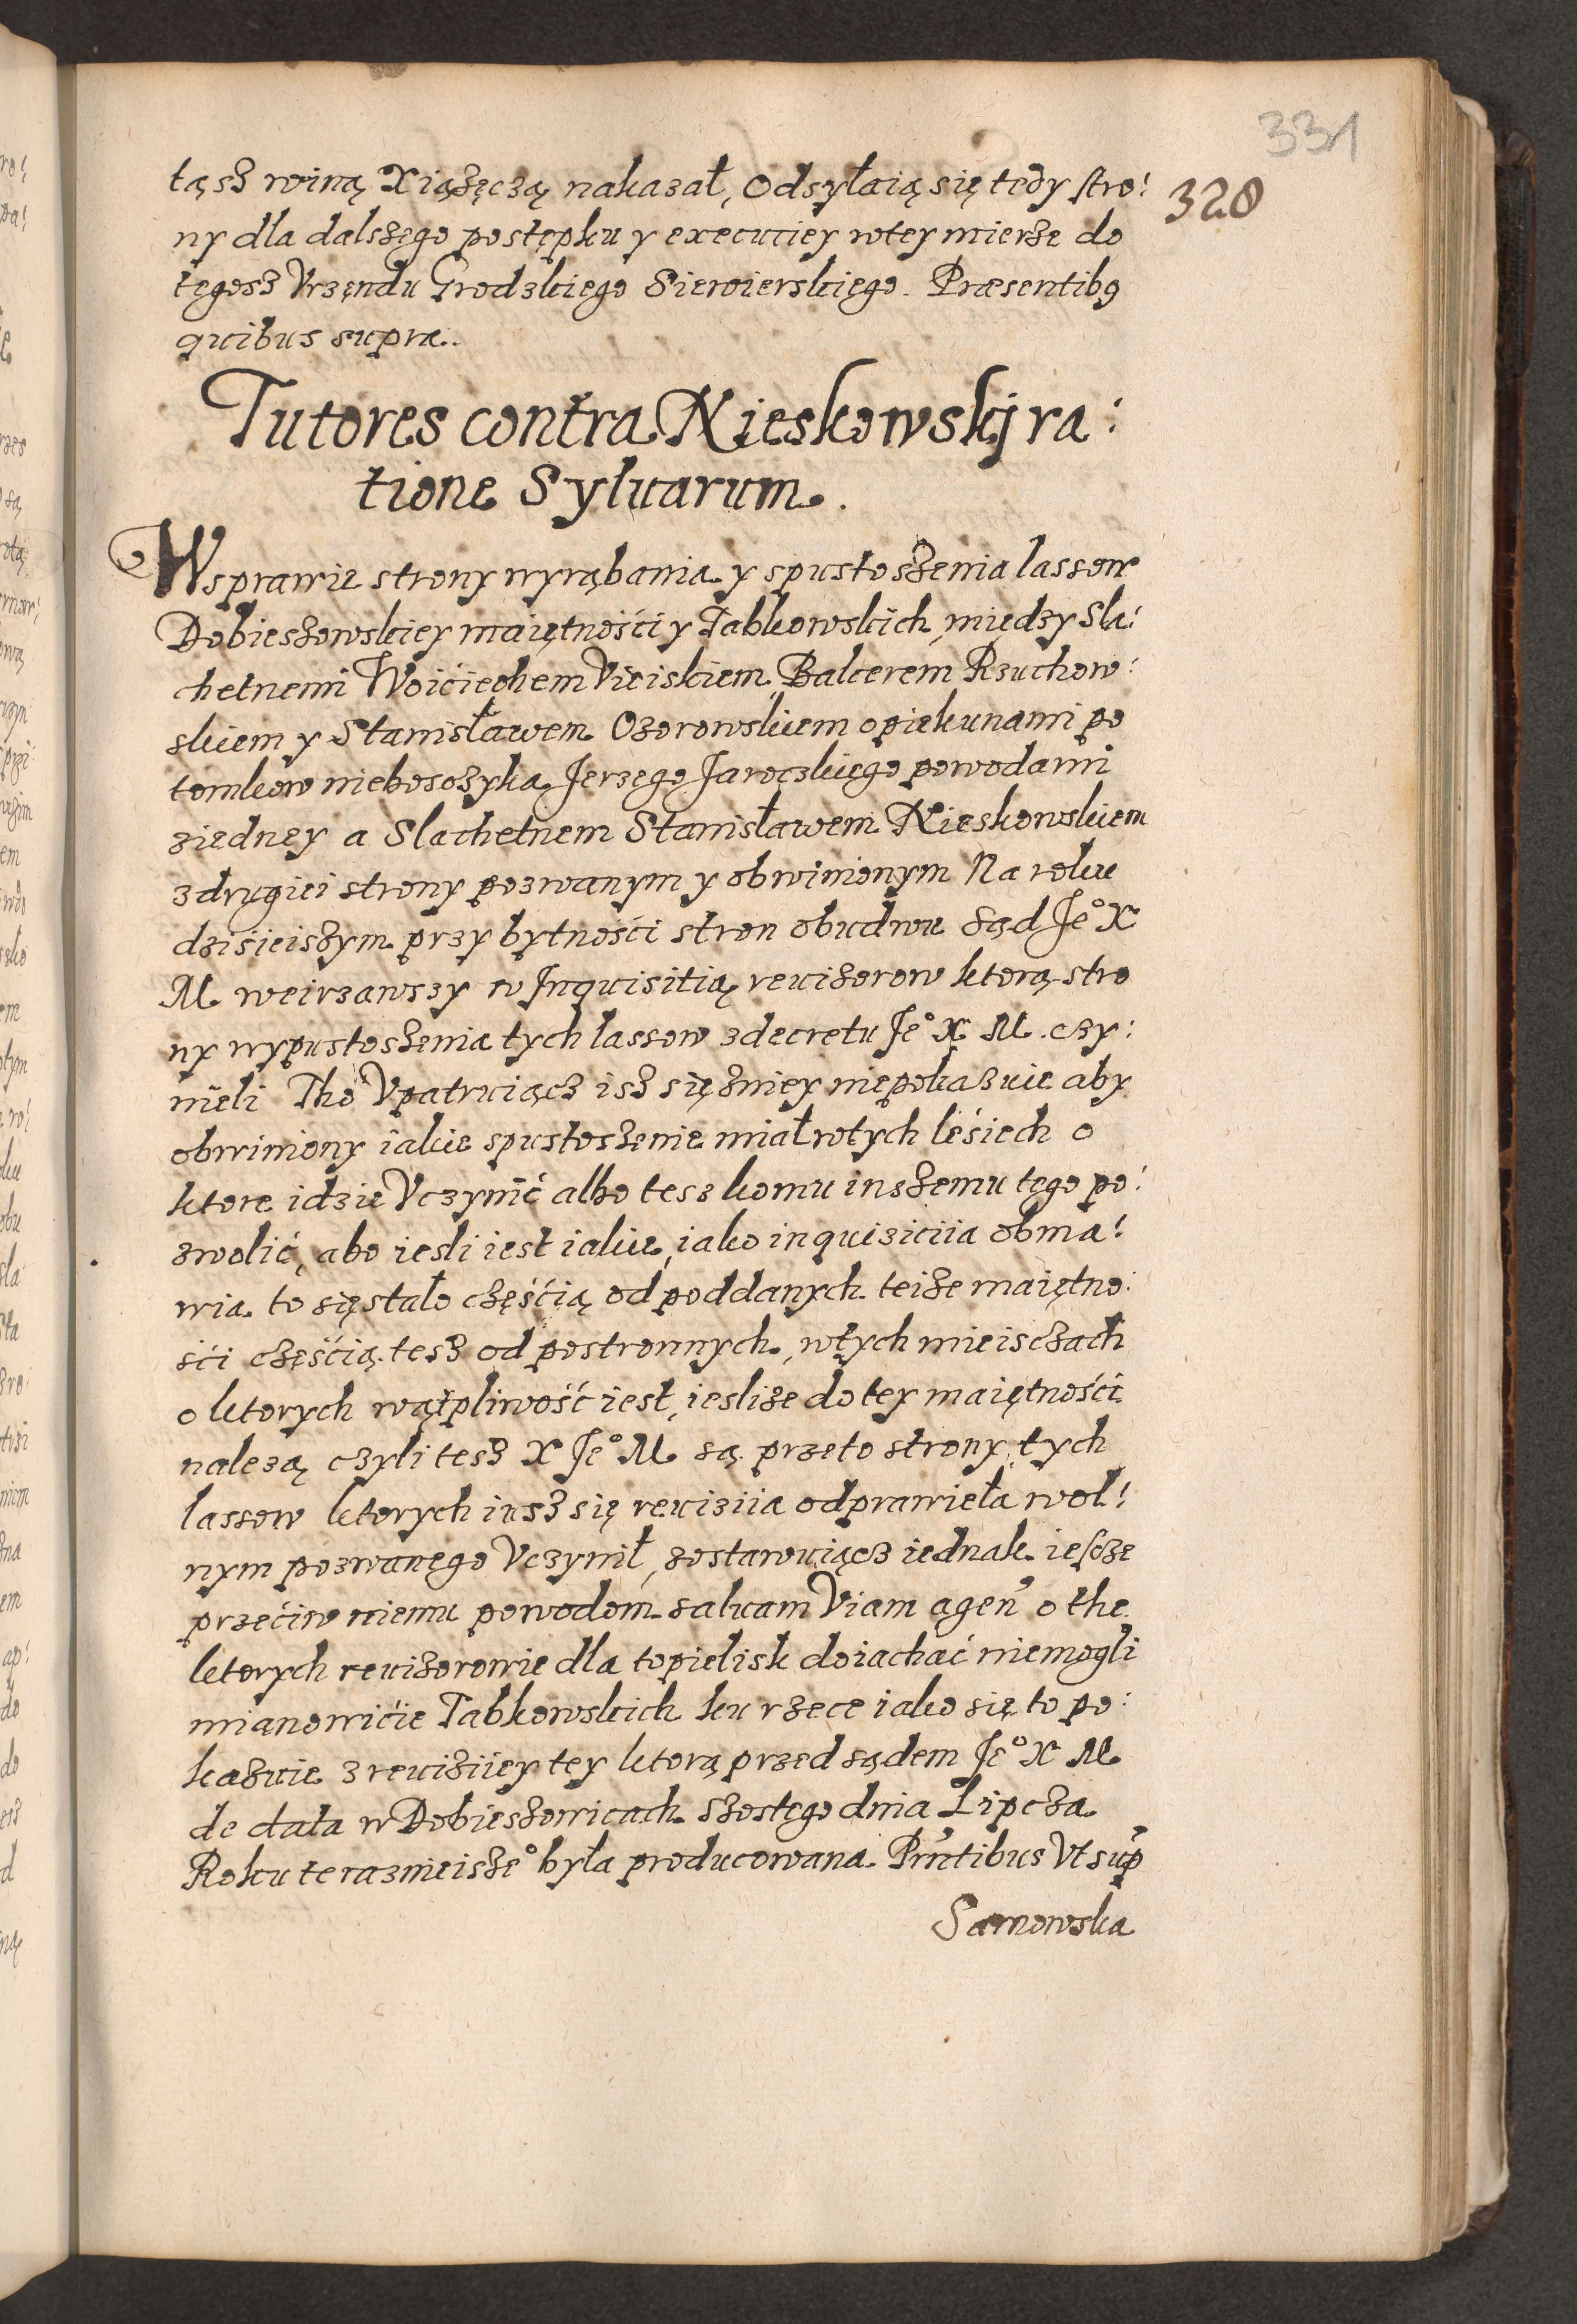 331
320
tąsz winą Xiążęczą nakazał, Odsyłaią się tedy stro:
ny dla dalszęgo postępku y executiey wtey mierze do
tęgosz Vrzęndu Grodzkiego Siewierskięgo. Præsentib9
quibus supra.
Tutores contra Nieskowskj ra:
tione Syluarum.
Wsprawie strony wyrąbania y spustoszenia lassow
Dobieszowskiey maiętnośći y Tabkowskich, między Sla:
chetnemi Woićiechem Vieiskiem, Balcerem Rzuchow:
skiem y Stanisławem Ozorowskiem opiekunami po
tomkow nieboszczyka Jerzęgo Jaroczkięgo powodami
ziedney a Slachetnem Stanisławem Nieskowskiem
zdrugiei strony pozwanym y obwinionym Na roku
dzisieiszym przy bytnośći stron obudwu Sąd Je° X
M. weirzawszy w Inquisitią reuizorow ktorą stro
ny wypustoszenia tych lassow zdecretu Je° X M. czy:
nieli Tho Vpatruiącz isz się zniey niepokazuie aby
obwiniony iakie spustoszenie miał wtych leśiech o
ktore idzie Vczynić albo tesz komu inszemu tęgo po:
zwolić, abo iesli iest iakie, iako inquiziciia obma:
wia to się stało częśćią od poddanych teize maiętno:
śći częśćią tesz od postronnych, wtych mieisczach
o ktorych wątpliwość iest, iesliże do tey maiętnośći
nalezą czyli tesz X Je° M są przeto strony tych
lassow ktorych iusz się reuiziia odprawieła wol:
nym pozwanęgo Vczynił, zostawuiącz iednak iescze
przećiw niemu powodom saluam Viam agen' o the
ktorych reuizorowie dla topielisk doiachać niemogli
mianowićie Tabkowskich ku rzece iako się to po:
kazuie z reuiziiey tey ktorą przed sądem Je° X M
de data w Dobieszowicach Szostęgo dnia Lipcza
Roku terazniejsze° była producowana. Prntibus Vt sup
Sarnowska